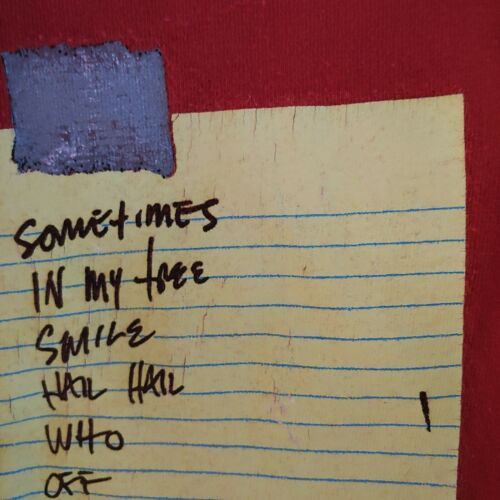 SOMETIMES
IN MY TREE
SMILE
HAIL HAIL
WHO
OFF